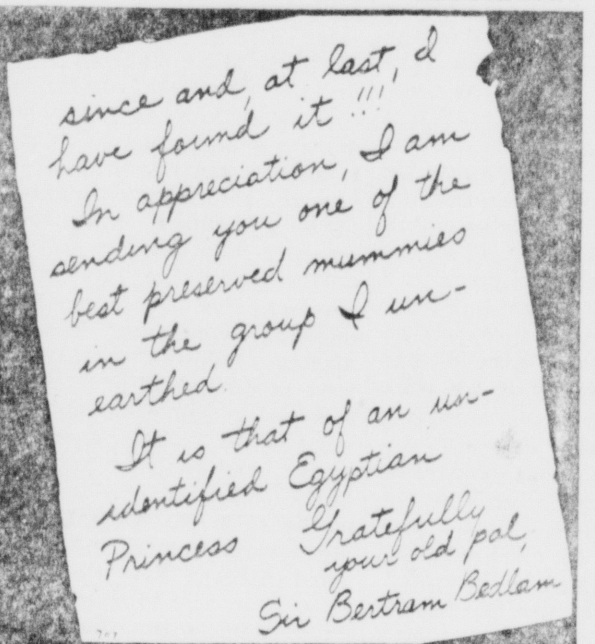 since and, at last, I
have found it!!!
In appreciation, I am
sending you one of the
best preserved mummies
in the group I un-
earthed.
It is that of an un-
identified Egyptian
Princess Gratefully
your old pal,
Sir Bertram Bedlam